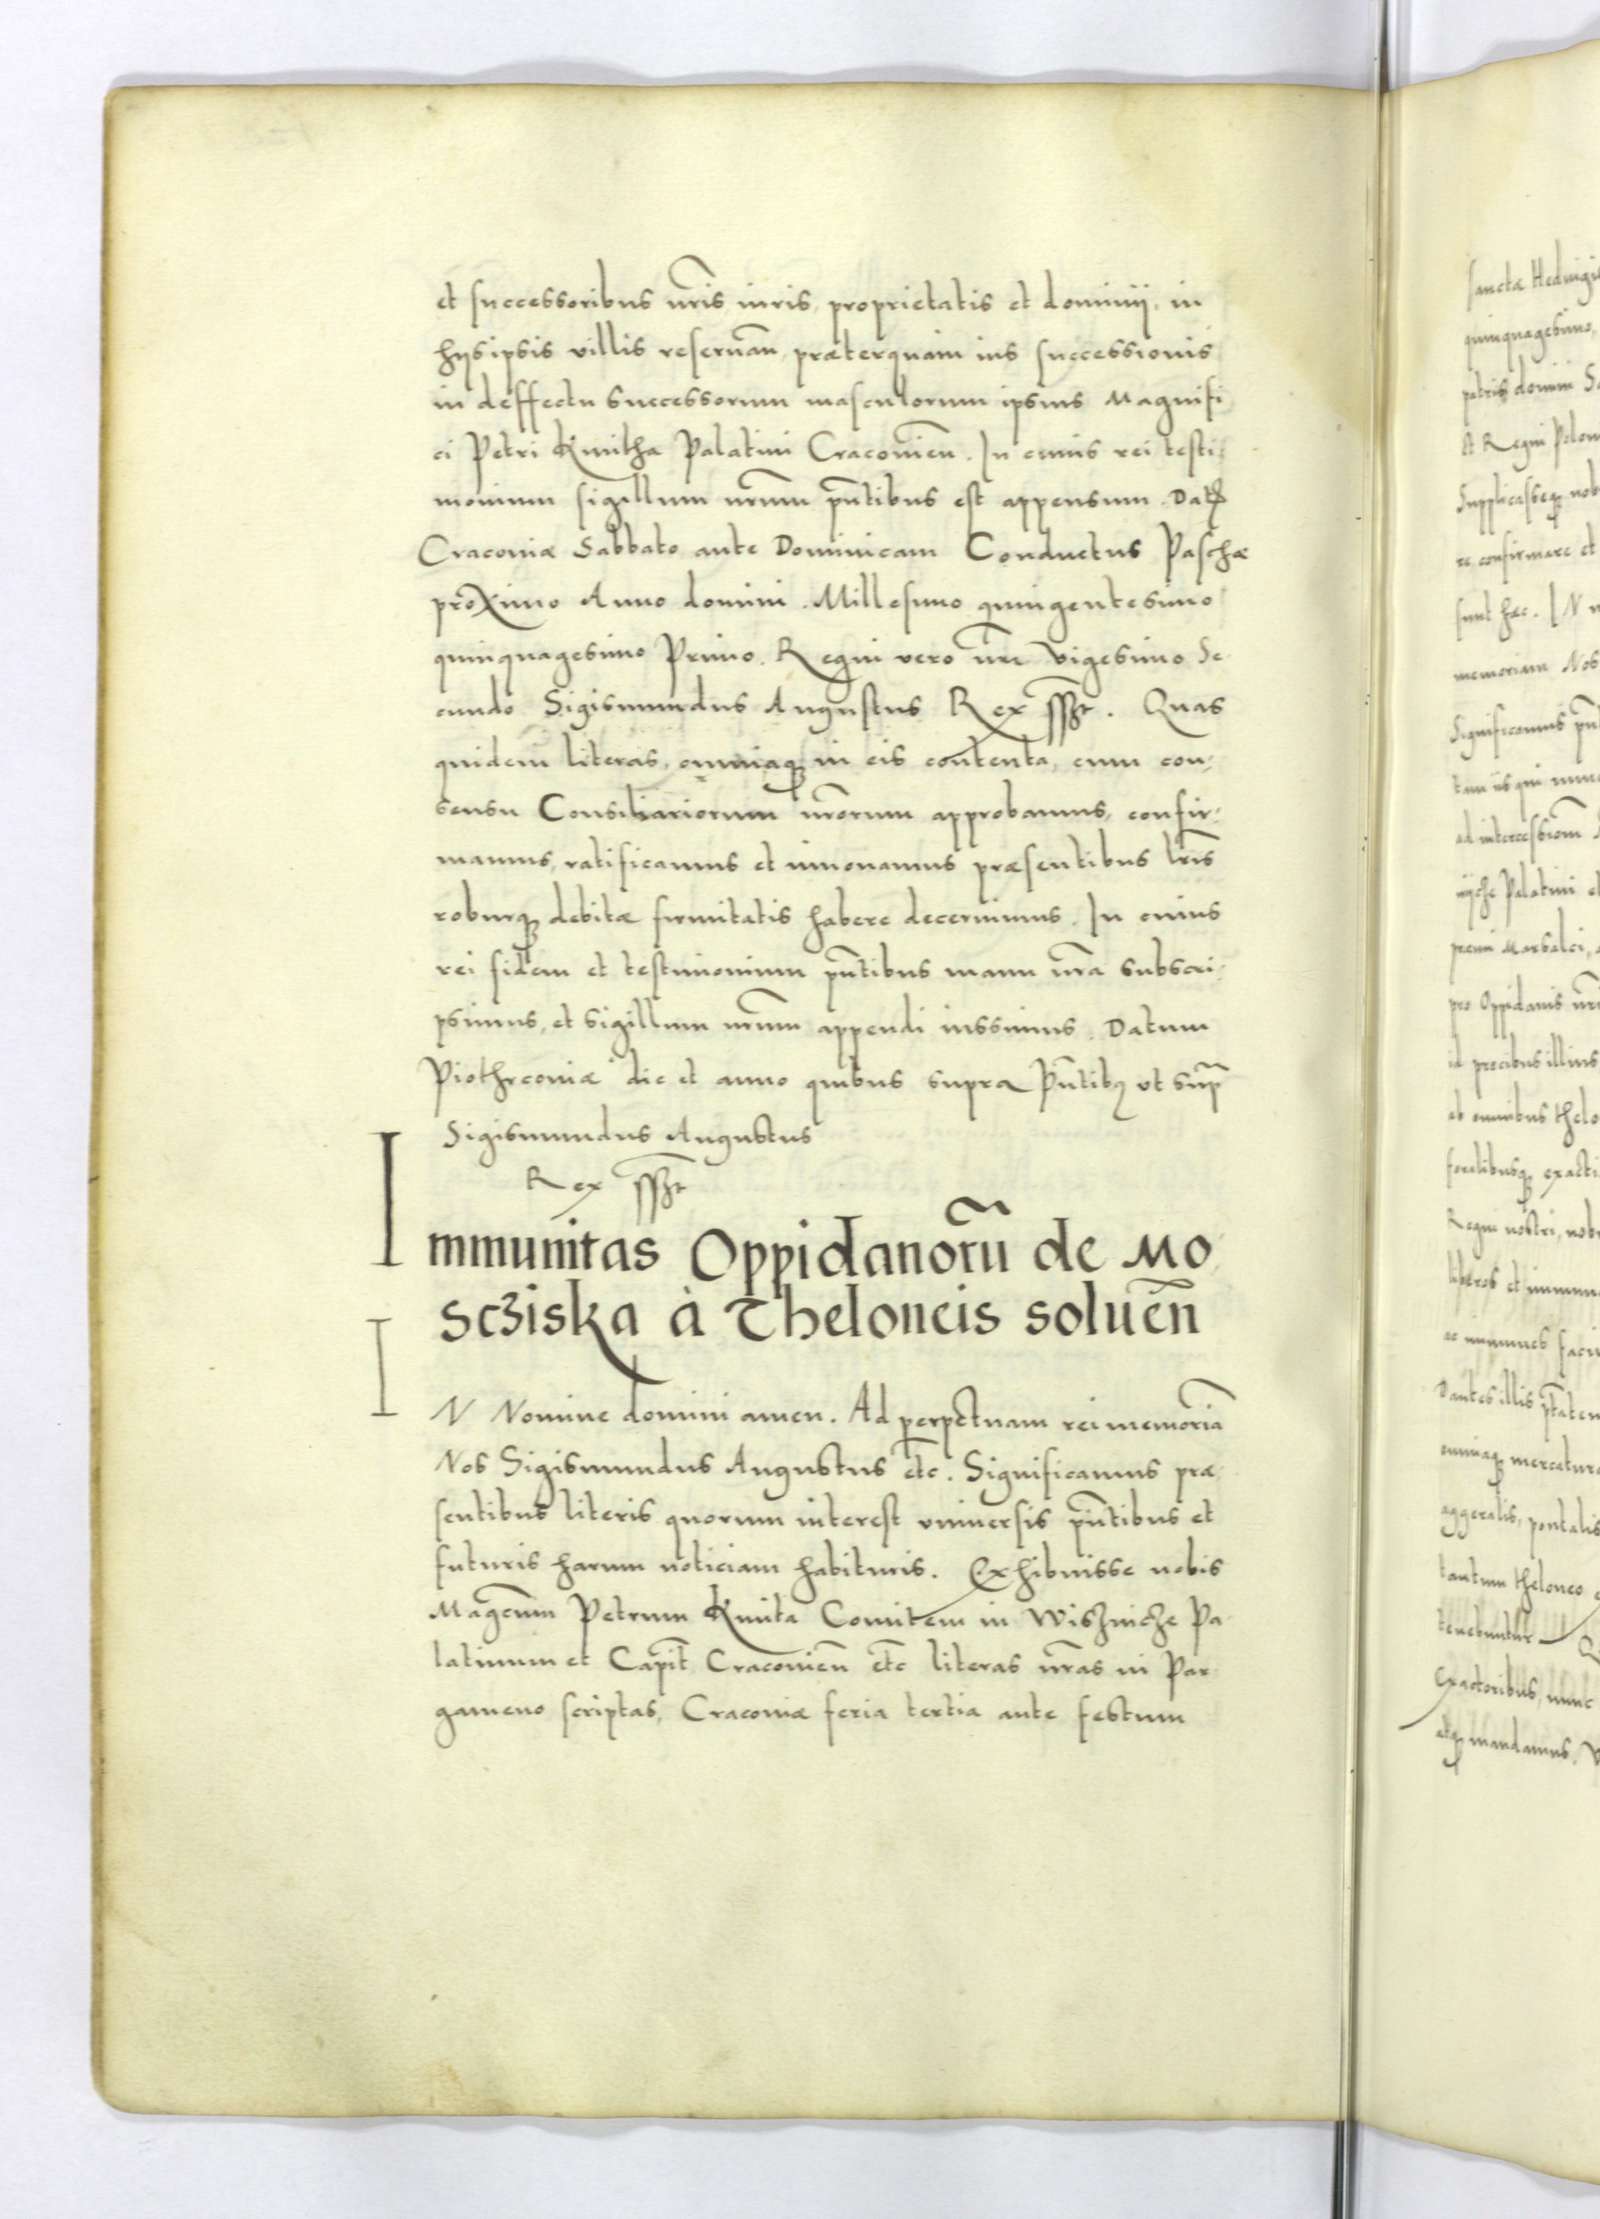 et successoribus nr̃is iuris, proprietatis et dominij, in
hijs ipsis villis reseruañ, præterquam ius successionis
in deffectu successorum masculorum ipsius Magnifi
ci Petri Kmitha Palatini Cracovieñ. In cuius rei testi-
monium sigillum nr̃um pñtibus est appensum. Dat
Cracoviæ Sabbato ante Dominicam Conductus Paschæ
proximo Anno domini. Millesimo quingentesimo
quinquagesimo Primo. Regni vero nr̃i vigesimo Se-
cundo Sigismundus Augustus Rex sspt. Quas
quidem literas, omniaq in eis contenta, cum con-
sensu Consiliariorum nr̃orum approbamus, confir-
mamus, ratificamus et innouamus præsentibus lr̃is
roburq debitæ firmitatis habere decernimus. In cuius
rei fidem et testimonium pñtibus manu nr̃a subscri-
psimus, et sigillum nr̃um appendi iussimus. Datum
Piothrcoviæ die et anno quibus supra Pñtibꝫ vt sup̃
Sigismundus Augustus
Rex sspt
Immunitas Oppidanorũ de Mo
scziska à Theloneis solueñ
IN Nomine domini amen. Ad perpetuam rei memoriã
Nos Sigismundus Augustus etc. Significamus præ-
sentibus literis quorum interest vniuersis pñtibus et
futuris harum noticiam habituris. Exhibuisse nobis
Mag̃cum Petrum Kmita Comitem in Wisznicze Pa-
latinum et Capit̃ Cracovieñ etc literas nr̃as in Par-
gameno scriptas, Cracoviæ feria tertia ante festum
sanctæ Hedwigis
quinquagesimo,
patris domini
et Regni Polon
Supplicasseq nob
re confirmare et
sunt hæc. IN
memoriam Nos
Significamus pñ
tam iis qui nunc
ad intercessionem
Palatini et
premi Marsalci,
pro Oppidanis nr̃i
id precibus illius
ab omnibus thelo
foralibusq exacti
Regni nostri, nob
liberos et immun
ac immunes faci
Dantes illis
omniaq mercatura
aggeralis, pontalis
tantum theloneo
tenebuntur
Exactoribus, nunc
atq mandamus.